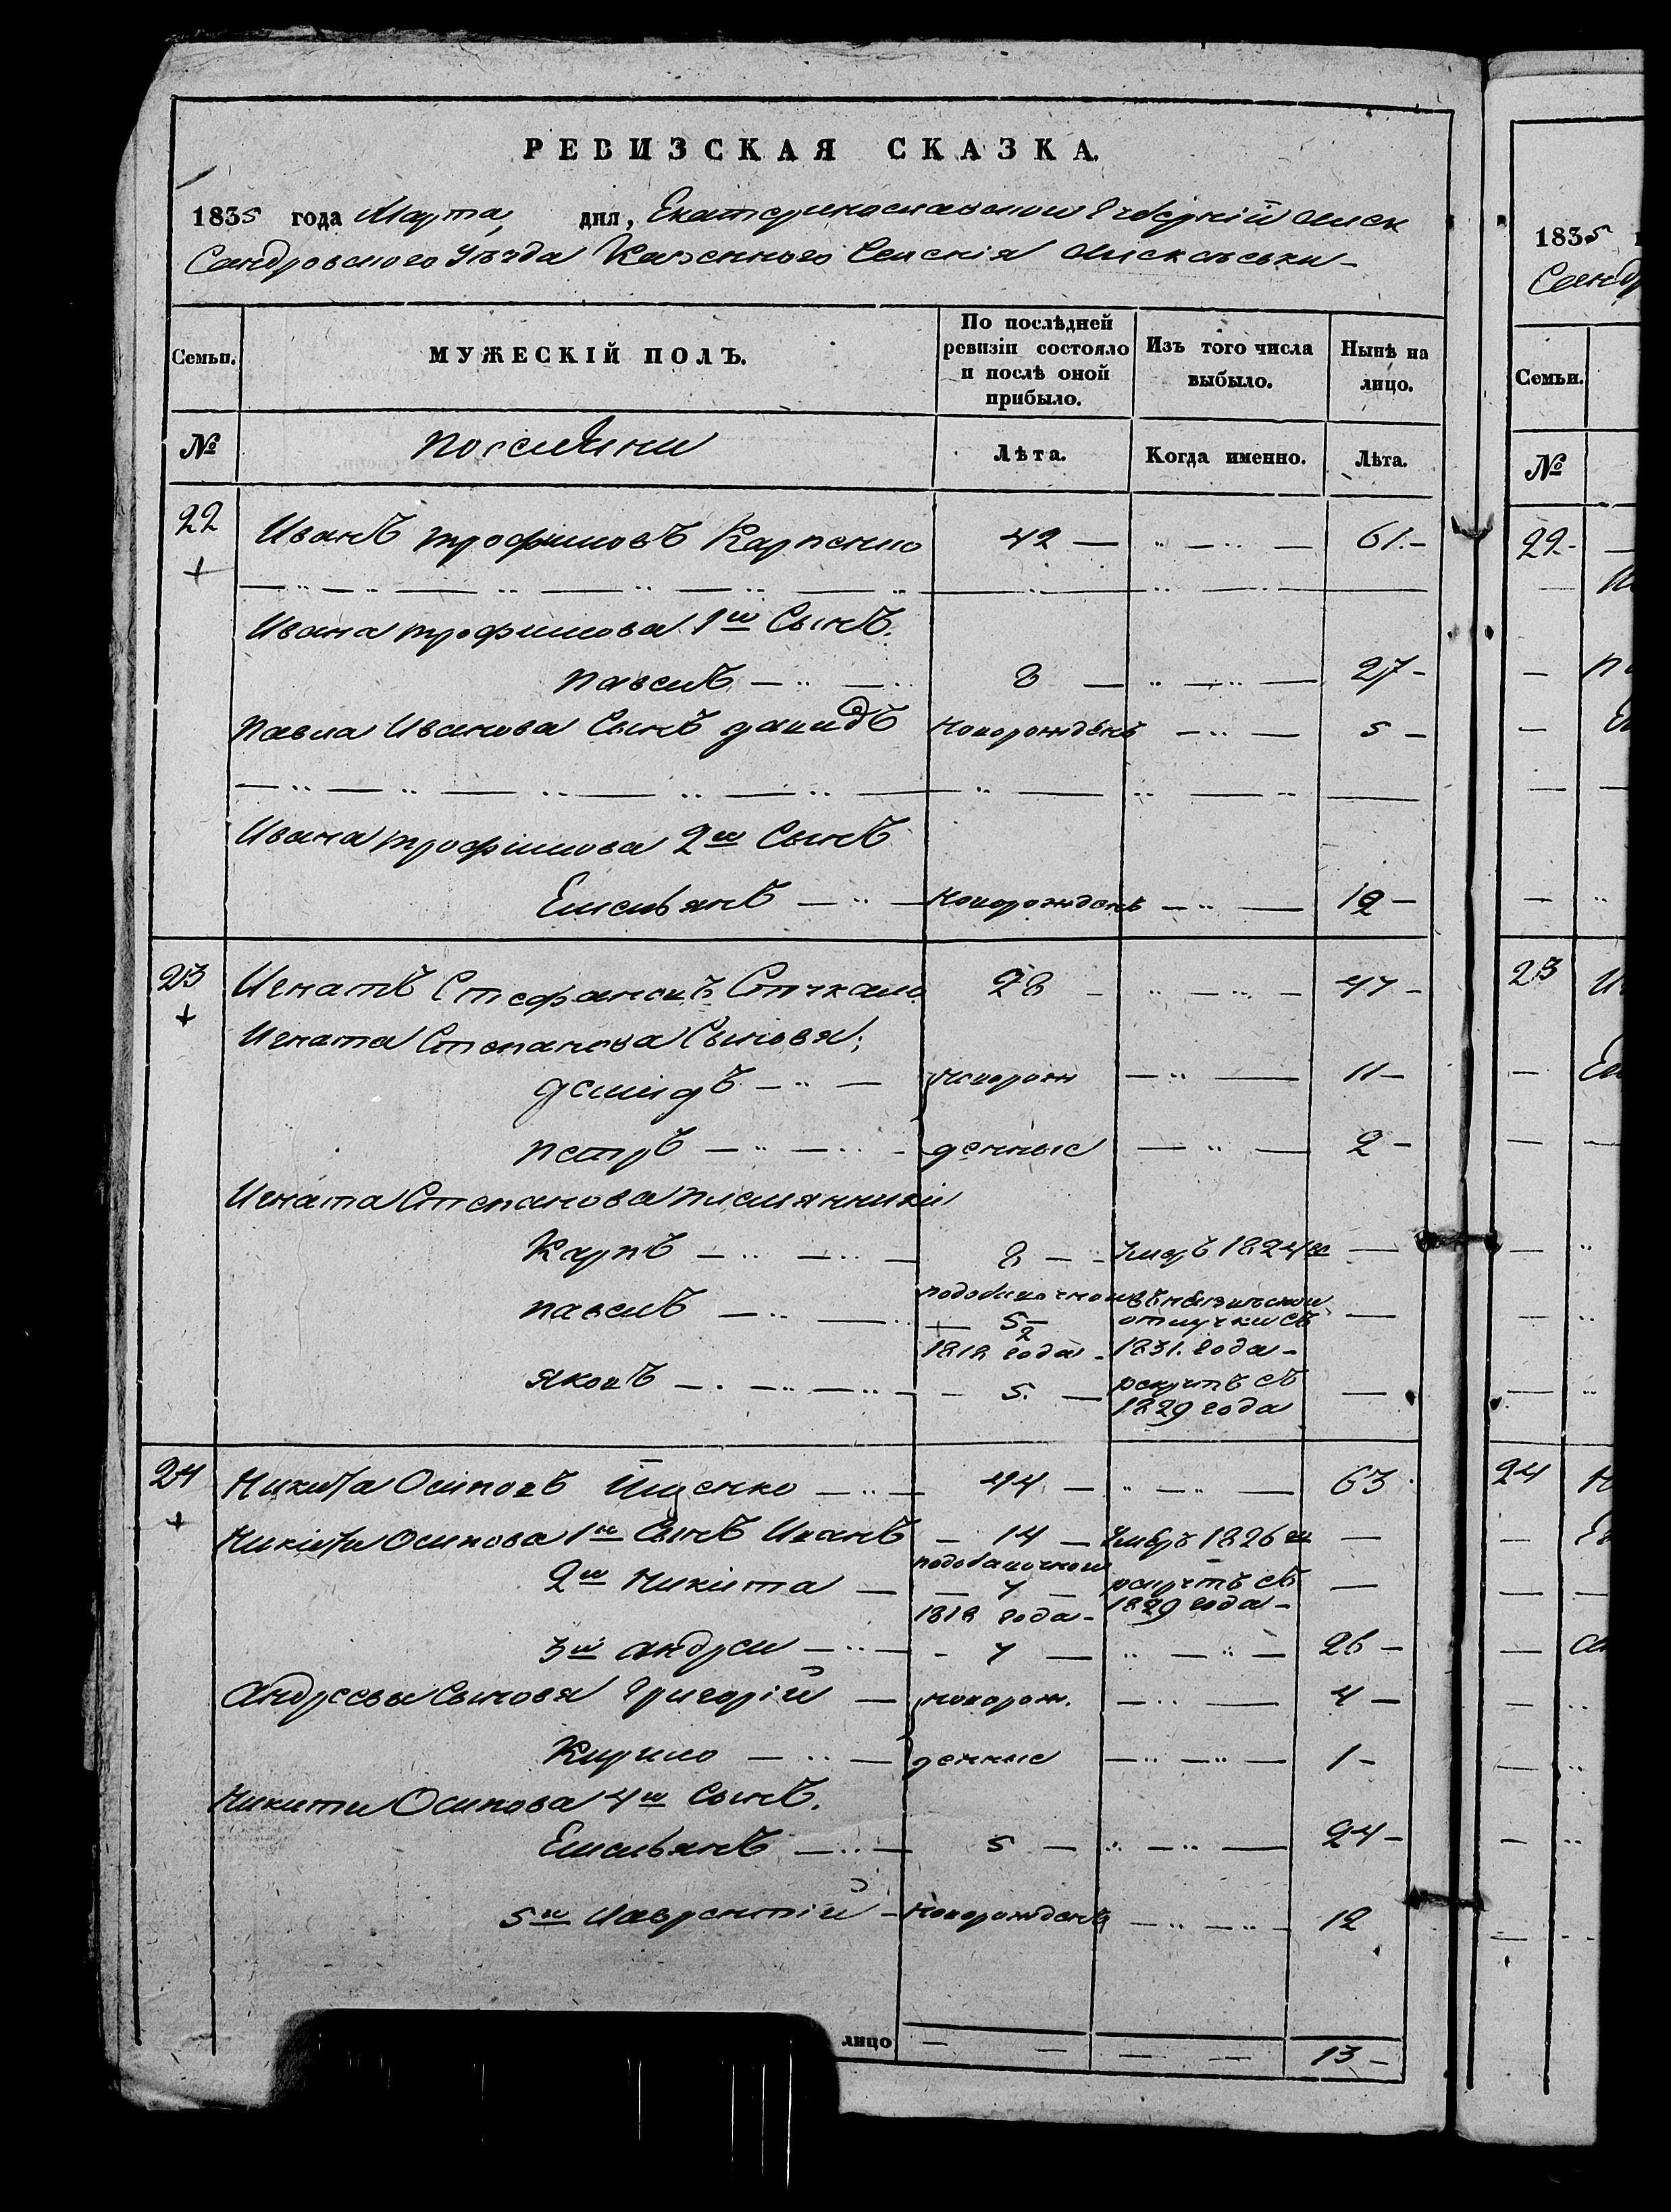 РЕВИЗСКАЯ СКАЗКА.
1835 года Марта, дня, Екатеринославской Губерній Алек
Сандровского Уезда Казенного Селенія
Семьи.
МУЖЕСКІЙ ПОЛЪ.
По послѣдней ревизіи состояло и послѣ оной прибыло.
Изъ того числа выбыло.
Нынѣ на лицо.
№
Лѣта.
Когда именно.
Лѣта.
22 Иванъ трофимовъ Карпенко 42 — 61.—
Ивана трофимова 1й Сынъ.
павелъ — 8 — 27 —
павла Иванова Сынъ давидъ новорожденъ — 5 —
Ивана трофимова 2й Сынъ
Емельянъ — новорожденъ — 12 —
23 Игнатъ Стефановъ 28 — 47 —
Игната Степанова Сыновья:
демидъ — новорож — 11 —
петръ — денные — 2 —
Игната Степанова племянники
Карпъ — 8 — умеръ 1824го —
павелъ — 5 — отлучки съ —
1818 года — 1831. года —
яковъ — 5. — рекрутъ съ —
1829 года
24 Никита Осиповъ Ищенко — 44 — 63
Никиты Осипова 1й Сынъ Иванъ — 14 — умеръ 1826го —
2й Никита — 7 — рекрутъ съ —
1818 года — 1829 года —
3й андрей — 7 — 26 —
Андреевы Сыновья Григорій — новорож. — 4 —
Кирило — денные — 1 —
Никиты Осипова 4й Сынъ.
Емельянъ — 5 — 24 —
5й лаврентій — новорожденъ — 12
лицо — 13 —
1835
Санд
Семьи.
№
22.
23
24